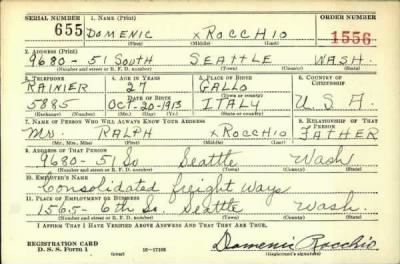 SERIAL NUMBER 1. NAME (Print) ORDER NUMBER
655 DOMENIC x ROCCHIO 1556
(First) (Middle) (Last)
2. ADDRESS (Print)
9680 - 51 SOUTH SEATTLE WASH.
(Number and street or R. F. D. number) (Town) (County) (State)
3. TELEPHONE 4. AGE IN YEARS 5. PLACE OF BIRTH 6. COUNTRY OF CITIZENSHIP
RAINIER 27 GALLO
DATE OF BIRTH (Town or county)
5885 OCT-20-1913 ITALY U S A.
(Exchange) (Number) (Mo.) (Day) (Yr.) (State or country)
7. NAME OF PERSON WHO WILL ALWAYS KNOW YOUR ADDRESS 8. RELATIONSHIP OF THAT PERSON
MR. RALPH x ROCCHIO FATHER
(Mr., Mrs., Miss) (First) (Middle) (Last)
9. ADDRESS OF THAT PERSON
9680 - 51 So Seattle Wash
(Number and street or R. F. D. number) (Town) (County) (State)
10. EMPLOYER'S NAME
Consolidated freight Ways
11. PLACE OF EMPLOYMENT OR BUSINESS
1565 - 6th So. Seattle Wash.
(Number and street or R. F. D. number) (Town) (County) (State)
I AFFIRM THAT I HAVE VERIFIED ABOVE ANSWERS AND THAT THEY ARE TRUE.
REGISTRATION CARD
D. S. S. Form 1 16—17105 Domenic Rocchio
(over) (Registrant's signature)